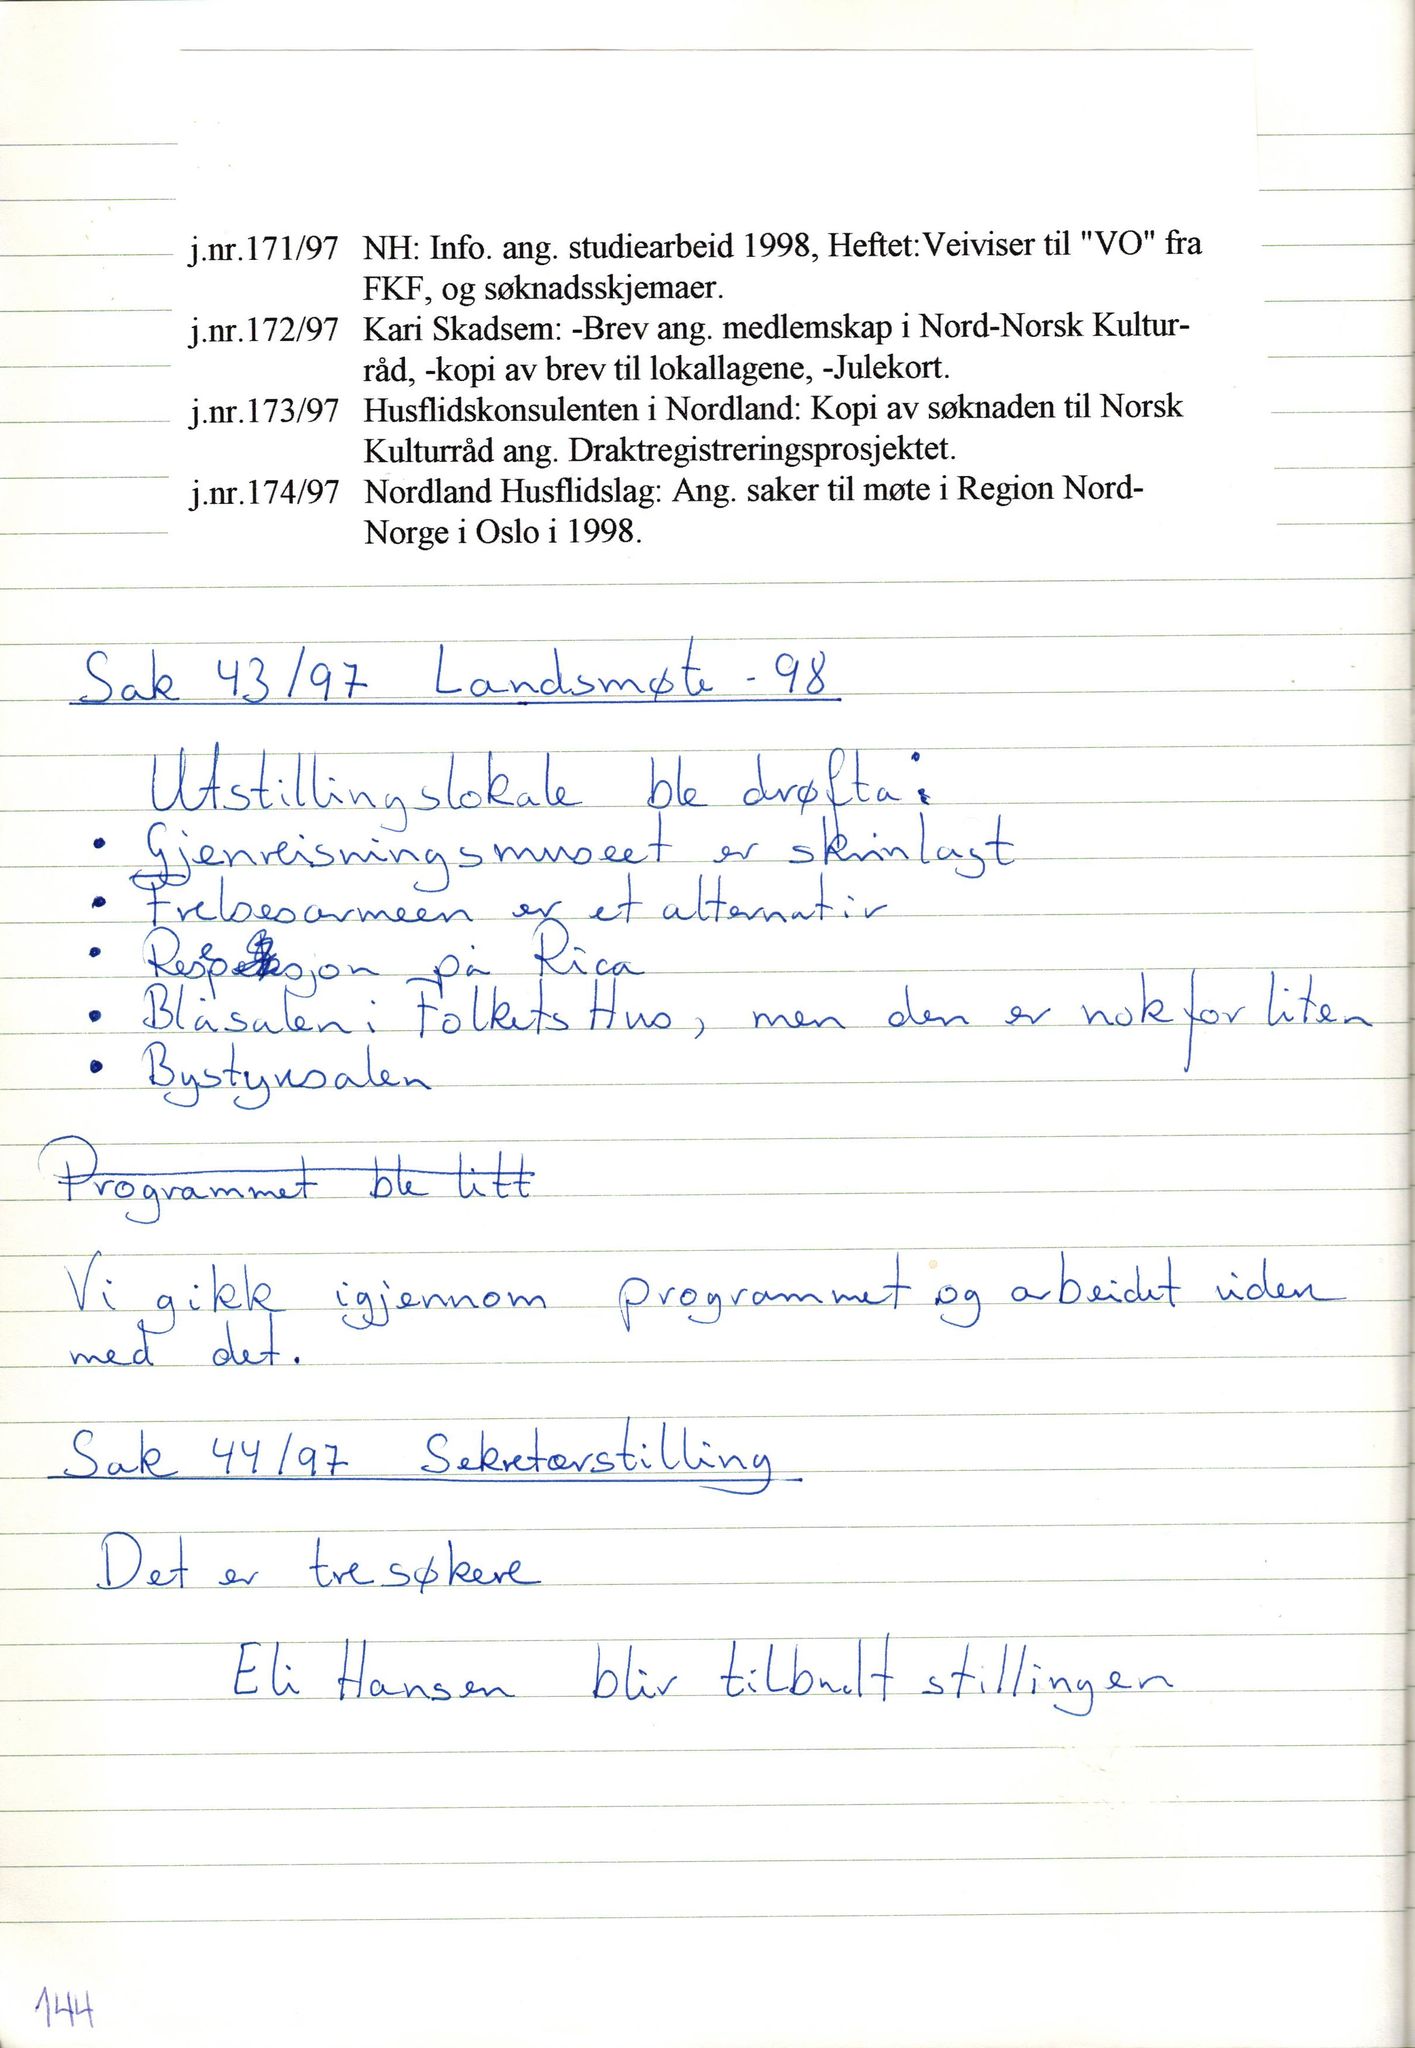 j.nr.171/97 NH: Info. ang. studiearbeid 1998, Heftet:Veiviser til "VO" fra
FKF, og søknadsskjemaer.
j.nr.172/97 Kari Skadsem: -Brev ang. medlemskap i Nord-Norsk Kultur-
råd, -kopi av brev til lokallagene, -Julekort.
j.nr.173/97 Husflidskonsulenten i Nordland: Kopi av søknaden til Norsk
Kulturråd ang. Draktregistreringsprosjektet.
j.nr.174/97 Nordland Husflidslag: Ang. saker til møte i Region Nord-
Norge i Oslo i 1998.
Sak 43/97 Landsmøte - 98
Utstillingslokale ble drøfta:
• Gjenreisningsmuseet er skrinlagt
• Frelsesarmeen er et alternativ
• Resepsjon på Rica
• Blåsalen i Folkets Hus, men den er nok for liten
• Bystyresalen
Programmet ble litt
Vi gikk igjennom programmet og arbeidet viden
med det.
Sak 44/97 Sekretærstilling
Det er tre søkere
Eli Hansen blir tilbudt stillingen
144